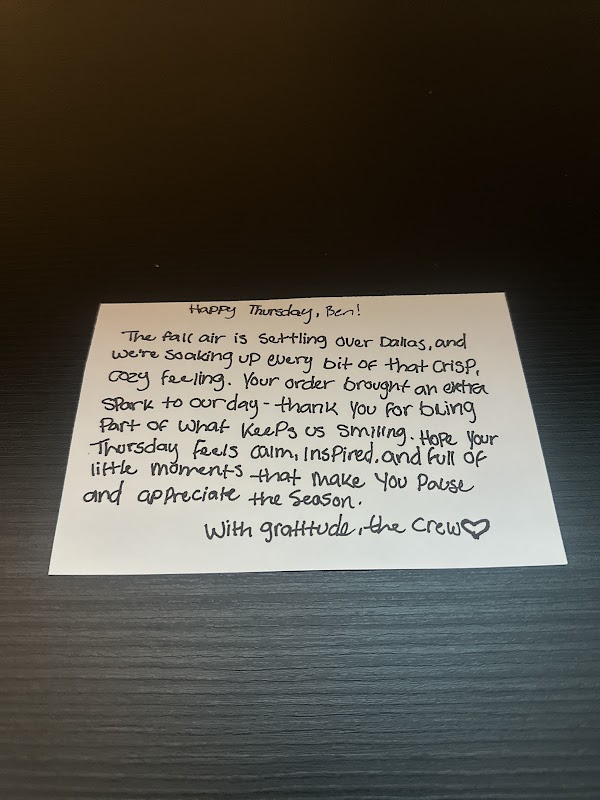 Happy Thursday, Ben!
The fall air is settling over Dallas, and
we're soaking up every bit of that crisp,
cozy feeling. Your order brought an extra
spark to our day - thank you for being
part of what keeps us smiling. Hope your
Thursday feels calm, inspired, and full of
little moments that make you pause
and appreciate the season.
With gratitude, the Crew♡